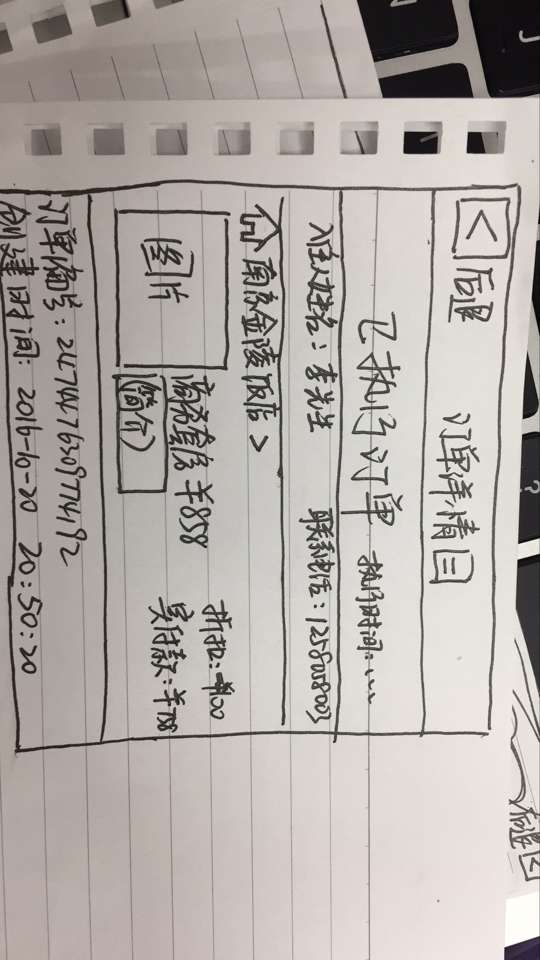 < 后退
订单详情三
已执行订单 执行时间：...
入住人姓名：李先生 联系电话：1258058003
南京金陵饭店 >
图片
商务套房 ￥858
(简介)
折扣：￥100
实付款：￥758
订单编号：2471447630977419２
创建时间：2016-10-20 20:50:20
后退 <